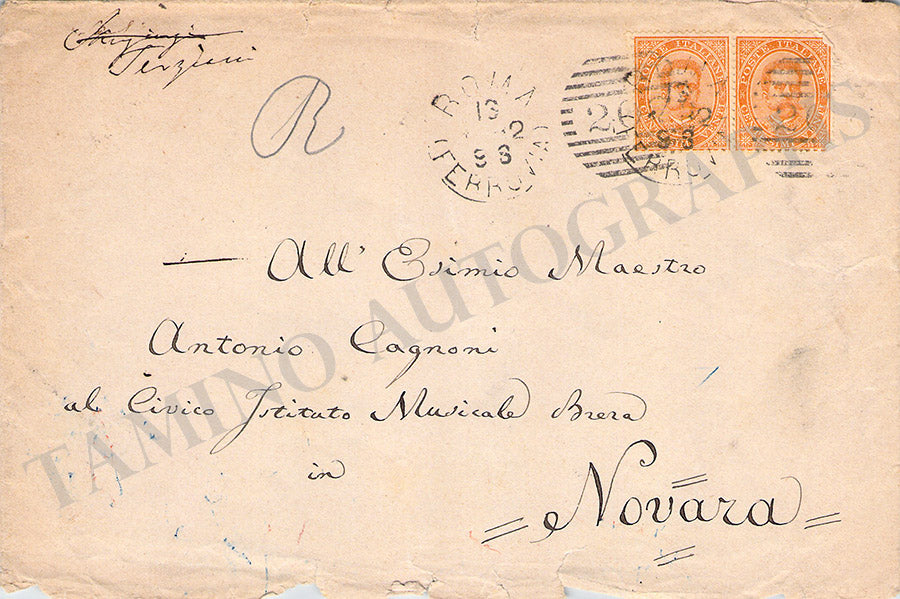 Terziani
R
ROMA
19
2
93
(FERROVIA)
26
POSTE ITALIANE
POSTE ITALIANE
All' Esimio Maestro
Antonio Cagnoni
al Civico Istituto Musicale Brera
in
Novara
TAMINO AUTOGRAPHS